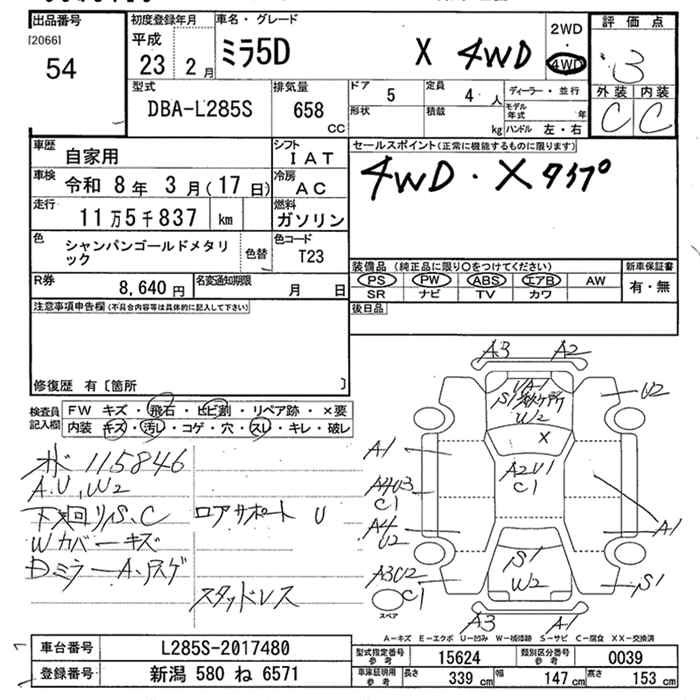 出品番号
[2066]
54
初度登録年月
平成
23 2月
車名・グレード
ミラ5D X 4WD
2WD
・
4WD
評価点
3
外装 内装
C C
型式
DBA-L285S
排気量
658
CC
ドア
5
定員
4 人
形状
積載
kg
ディーラー・並行
モデル年式 年
ハンドル 左・右
車歴
自家用
シフト
IAT
車検
令和 8年 3月(17日)
冷房
AC
走行
11万5千837 km
燃料
ガソリン
色
シャンパンゴールドメタリック
色替
色コード
T23
R券
8,640円
名変通知期限
月 日
セールスポイント(正常に機能するものに限ります)
4WD・Xタイプ
装備品 (純正品に限り〇をつけてください)
PS PW ABS エアB AW
SR ナビ TV カワ
新車保証書
有・無
後日品
注意事項申告欄(不具合内容等は具体的に記入して下さい)
修復歴 有〔箇所 〕
検査員記入欄
FW キズ・飛石・ヒビ割・リペア跡・×要
内装 キズ・汚レ・コゲ・穴・スレ・キレ・破レ
115846
A.U,W2
下廻リS.C
Wカバーキズ
DミラーA.
ロアサポート U
スタッドレス
A3 A2
UA1
S1
W2
U2
X
A1
A2U1
C1
A4U3
C1
A4
U2
A1
S1
W2
A3U2
C1
S1
A3 A1
スペア
A-キズ E-エクボ U-凹み W-補修跡 S-サビ C-腐食 XX-交換済
車台番号
L285S-2017480
登録番号
新潟 580 ね 6571
型式指定番号
参考
15624
類別区分番号
参考
0039
車庫証明用
参考
長さ
339 cm
幅
147 cm
高さ
153 cm